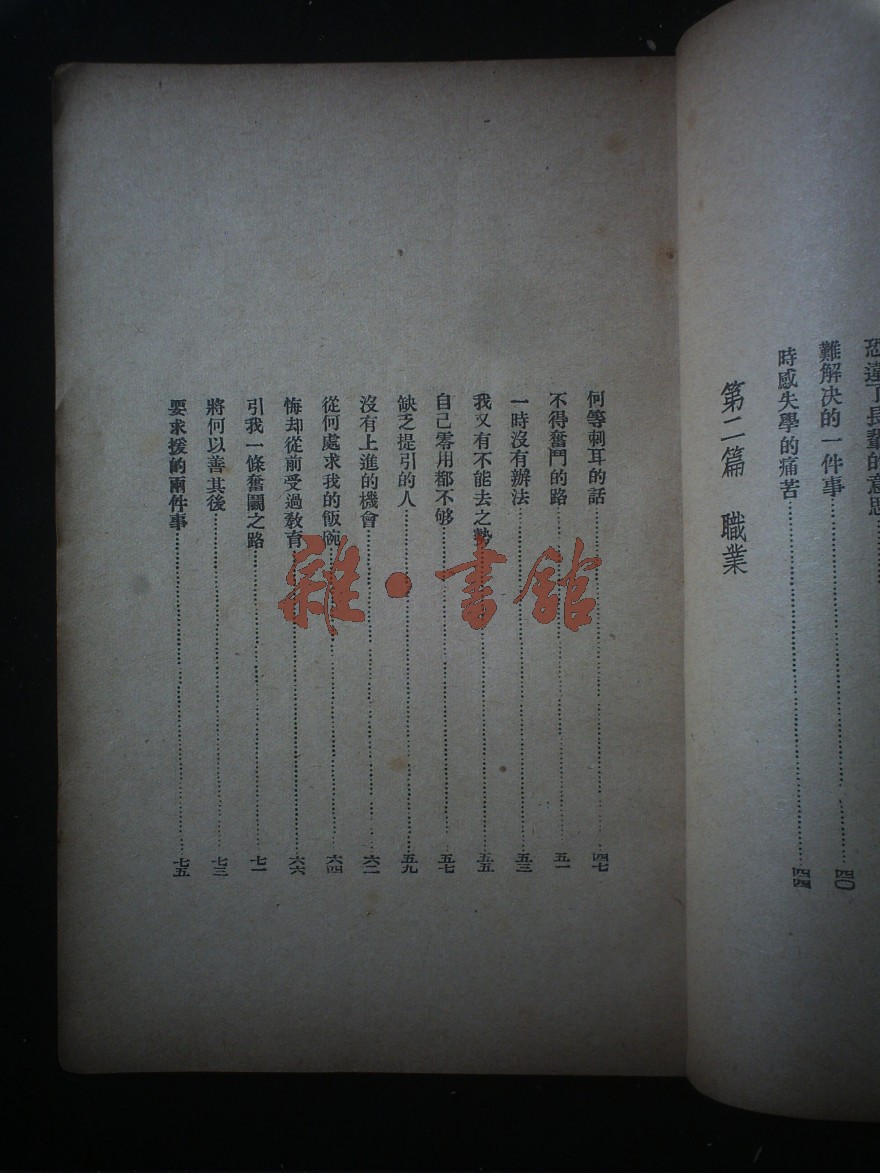 恐違了長輩的意思
難解決的一件事……四〇
時感失學的痛苦……四四
第二篇 職業
何等刺耳的話……四七
不得奮鬥的路……五一
一時沒有辦法……五三
我又有不能去之勢……五五
自己零用都不够……五七
缺乏提引的人……五九
沒有上進的機會……六二
從何處求我的飯碗……六四
悔却從前受過教育……六六
引我一條奮鬭之路……七一
將何以善其後……七三
要求援的兩件事……七五
雜·書館